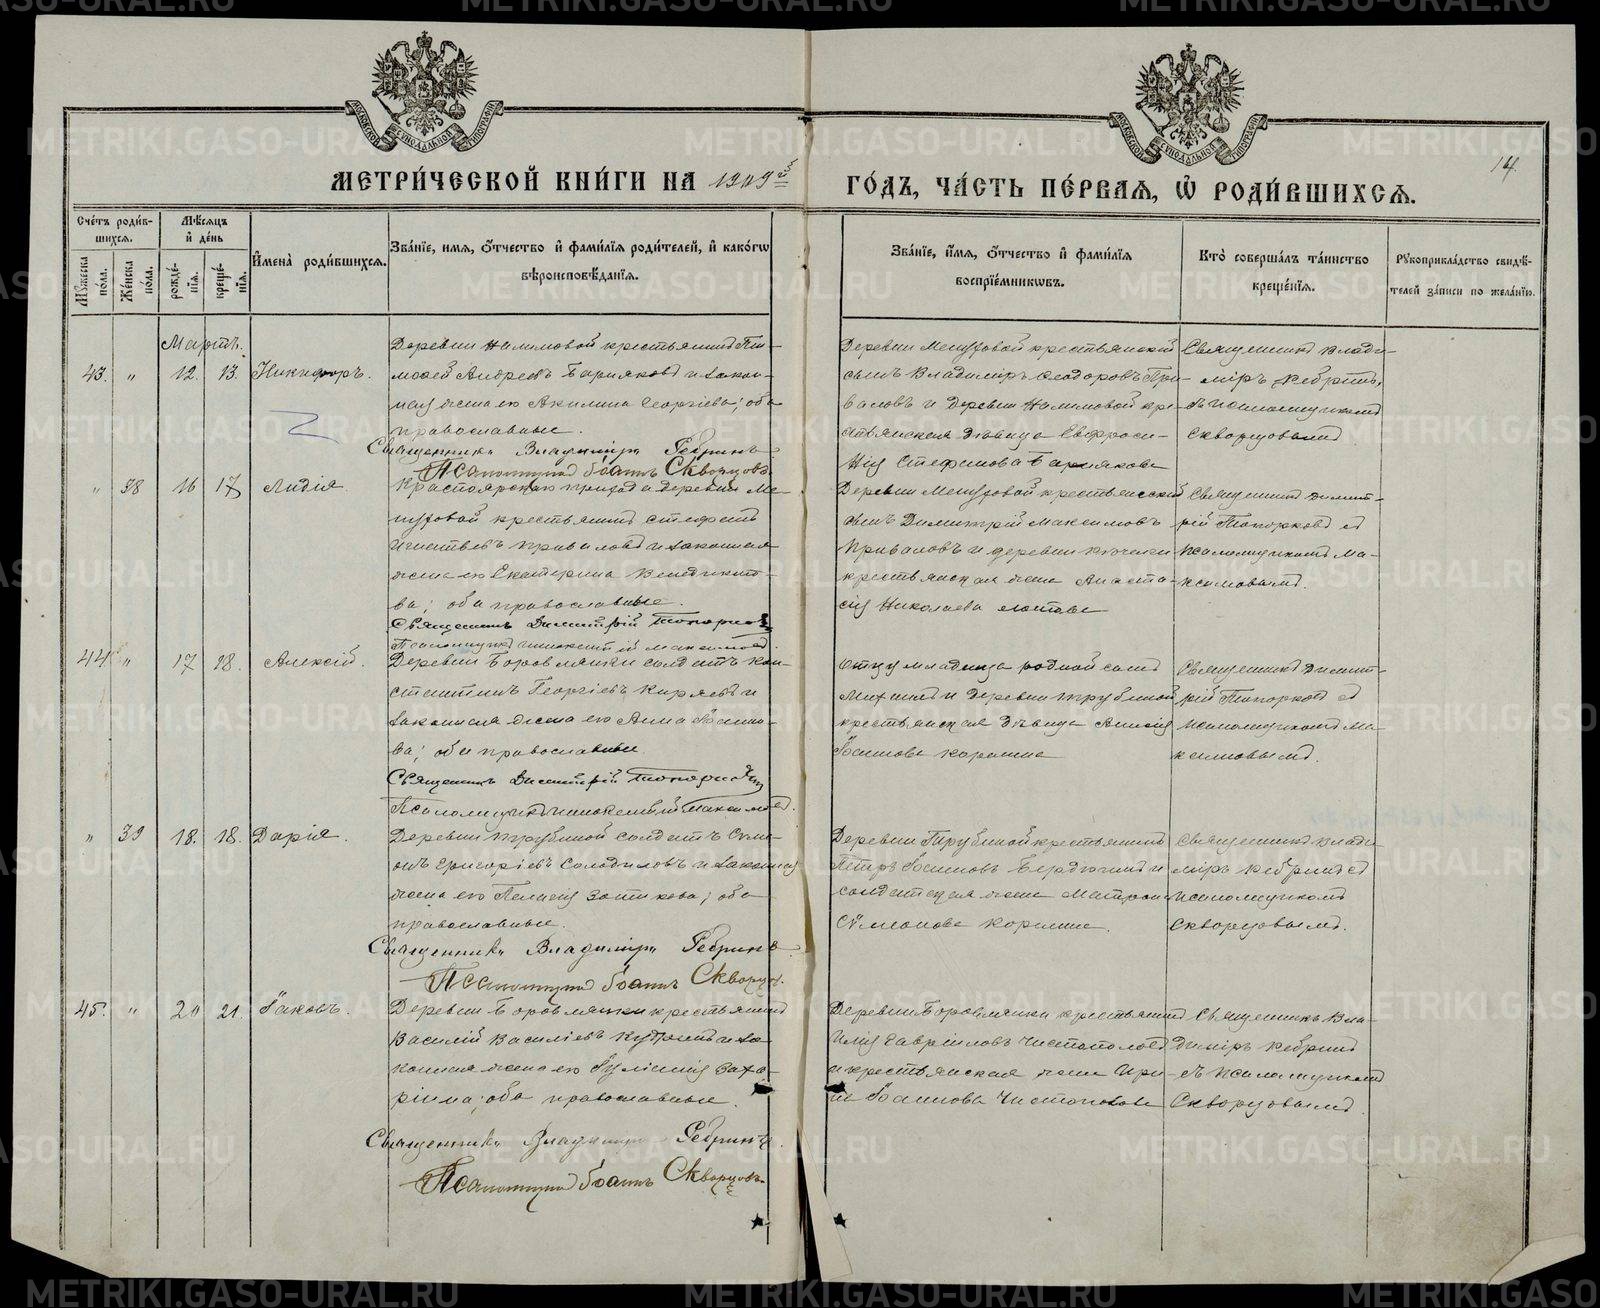 МЕТРИ́ЧЕСКОЙ КНИ́ГИ НА 1909й
ГО́ДЪ, ЧА́СТЬ ПЕ́РВАЯ, Ѡ РОДИ́ВШИХСЯ.
14.
Сче́тъ роди́в-
шихся.
Мѣ́сяцъ
и҆ де́нь
Мꙋ́жеска по́ла.
Же́нска по́ла.
рожде́-
нїя.
креще́-
нїя.
И҆мена̀ роди́вшихся.
Зва́нїе, имя, Ѻ҆́тчество и҆ фами́лїя роди́телей, и҆ како́гѡ
вѣроисповѣ́данїя.
Зва́нїе, и҆́мя, Ѻ҆́тчество и҆ фами́лїя
воспрїе́мникѡвъ.
Кто̀ соверша́лъ та́инство
креще́нїя.
Рꙋкоприкла́дство свидѣ́-
телей за́писи по жела́нїю.
Мартъ.
43. " 12. 13. Никифоръ.
Деревни Налимовой крестьянинъ Ти-
мофей Андреевъ Баряковъ и закон-
ная жена его Акилина Георгіева; оба
православные.
Священникъ Владиміръ Ребринъ
Псаломщикъ Іоаннъ Скворцовъ
Деревни Меңуовой крестьянскій
сынъ Владиміръ Ѳеодоровъ При-
валовъ и деревни Налимовой кре-
стьянская дѣвица Евфроси-
нія Стефанова Барякова
Священникъ Влади-
міръ Ребринъ
съ псаломщикомъ
Скворцовымъ
" 38 16 17 Лидія.
Красноярскаго прихода деревни Ме-
крестьянинъ Стефанъ
Игнатьевъ Приваловъ и законная
жена его Екатерина Венедикто-
ва; оба православные.
Священникъ Димитрій Топорковъ
Псаломщикъ Иннокентій Максимовъ.
крестьянскій
сынъ Димитрій Максимовъ
Приваловъ и деревни
крестьянская жена Анаста-
сія Николаева
Священникъ Димит-
рій Топорковъ съ
псаломщикомъ Ма-
ксимовымъ.
44 " 17 18. Алексій.
Деревни Боровлянки солдатъ Кон-
стантинъ Георгіевъ Киряевъ и
законная жена его Анна Іоанно-
ва; оба православные
Священникъ Димитрій Топорковъ
Псаломщикъ Иннокентій Максимовъ.
Отцу младенца родной сынъ
Михаилъ и деревни Трубиной
крестьянская дѣвица Анисія
Іоаннова Корзина
Священникъ Димит-
рій Топорковъ съ
псаломщикомъ Ма-
ксимовымъ.
" 39 18. 18. Дарія.
Деревни Трубиной солдатъ Сѵме-
онъ Григоріевъ Солодиловъ и законная
жена его Пелагія Зотикова; оба
православные.
Священникъ Владиміръ Ребринъ
Псаломщикъ Іоаннъ Скворцовъ.
Деревни Трубиной крестьянинъ
Петръ Іоанновъ Бердюгинъ и
солдатская жена Матрона
Сѵмеонова Корзина.
Священникъ Влади-
міръ Ребринъ съ
псаломщикомъ
Скворцовымъ.
45. " 20 21. Іаковъ.
Деревни Боровлянки крестьянинъ
Василій Василіевъ и за-
конная жена его Іуліанія Заха-
ріина; оба православные.
Священникъ Владиміръ Ребринъ.
Псаломщикъ Іоаннъ Скворцовъ.
Деревни Боровлянки крестьянинъ
Илія Гавріиловъ Чистополовъ
и крестьянская жена Ири-
на Іоаннова
Священникъ Вла-
диміръ Ребринъ
съ псаломщикомъ
Скворцовымъ.
METRIKI.GASO-URAL.RU